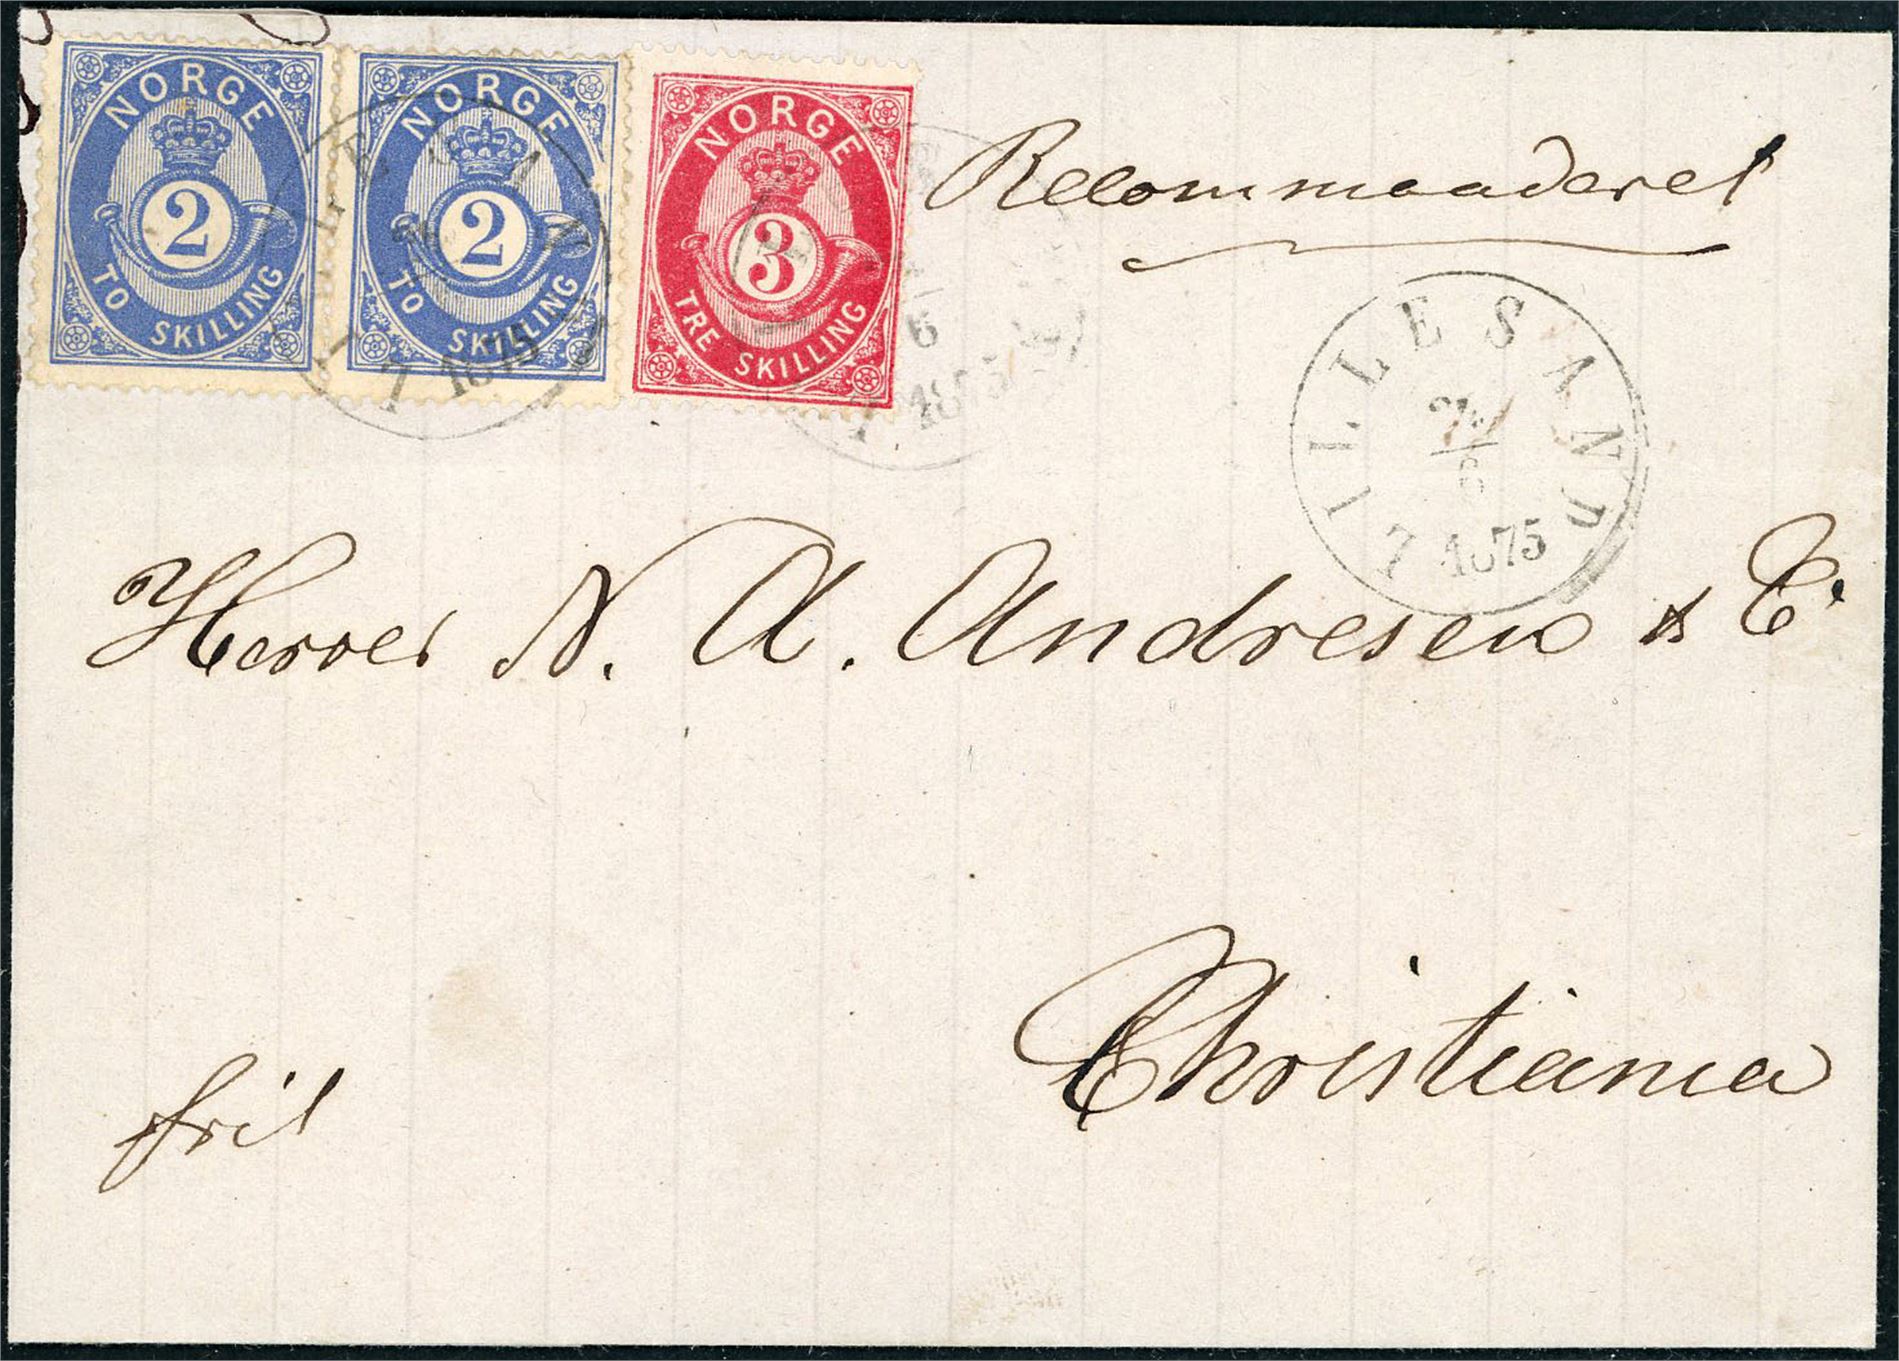 NORGE
2
TO SKILLING
NORGE
2
TO SKILLING
NORGE
3
TRE SKILLING
7 1875
6
7 1875
Recommanderet
LILLESAND
6
7 1875
Herrer N. A. Andresen & C°
Christiania
frit